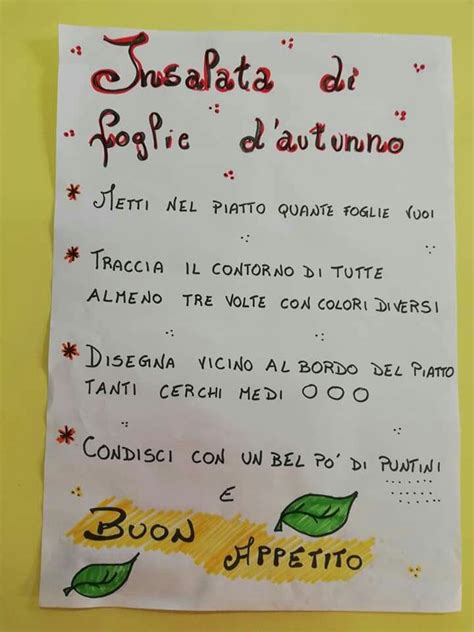 Insalata di
foglie d'autunno
* METTI NEL PIATTO QUANTE FOGLIE VUOI
* TRACCIA IL CONTORNO DI TUTTE
ALMENO TRE VOLTE CON COLORI DIVERSI
* DISEGNA VICINO AL BORDO DEL PIATTO
TANTI CERCHI MEDI O O O
* CONDISCI CON UN BEL PO' DI PUNTINI
E
BUON APPETITO